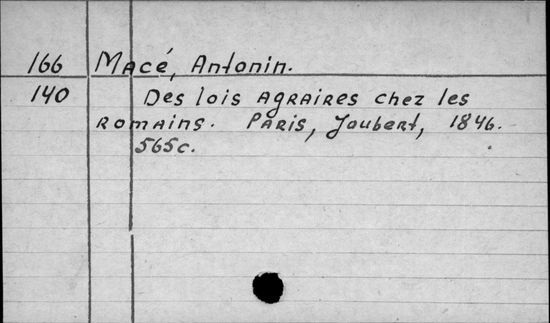 166 Macé, Antonin.
140 Des lois agraires chez les
romains. Paris, Joubert, 1846.
565c.